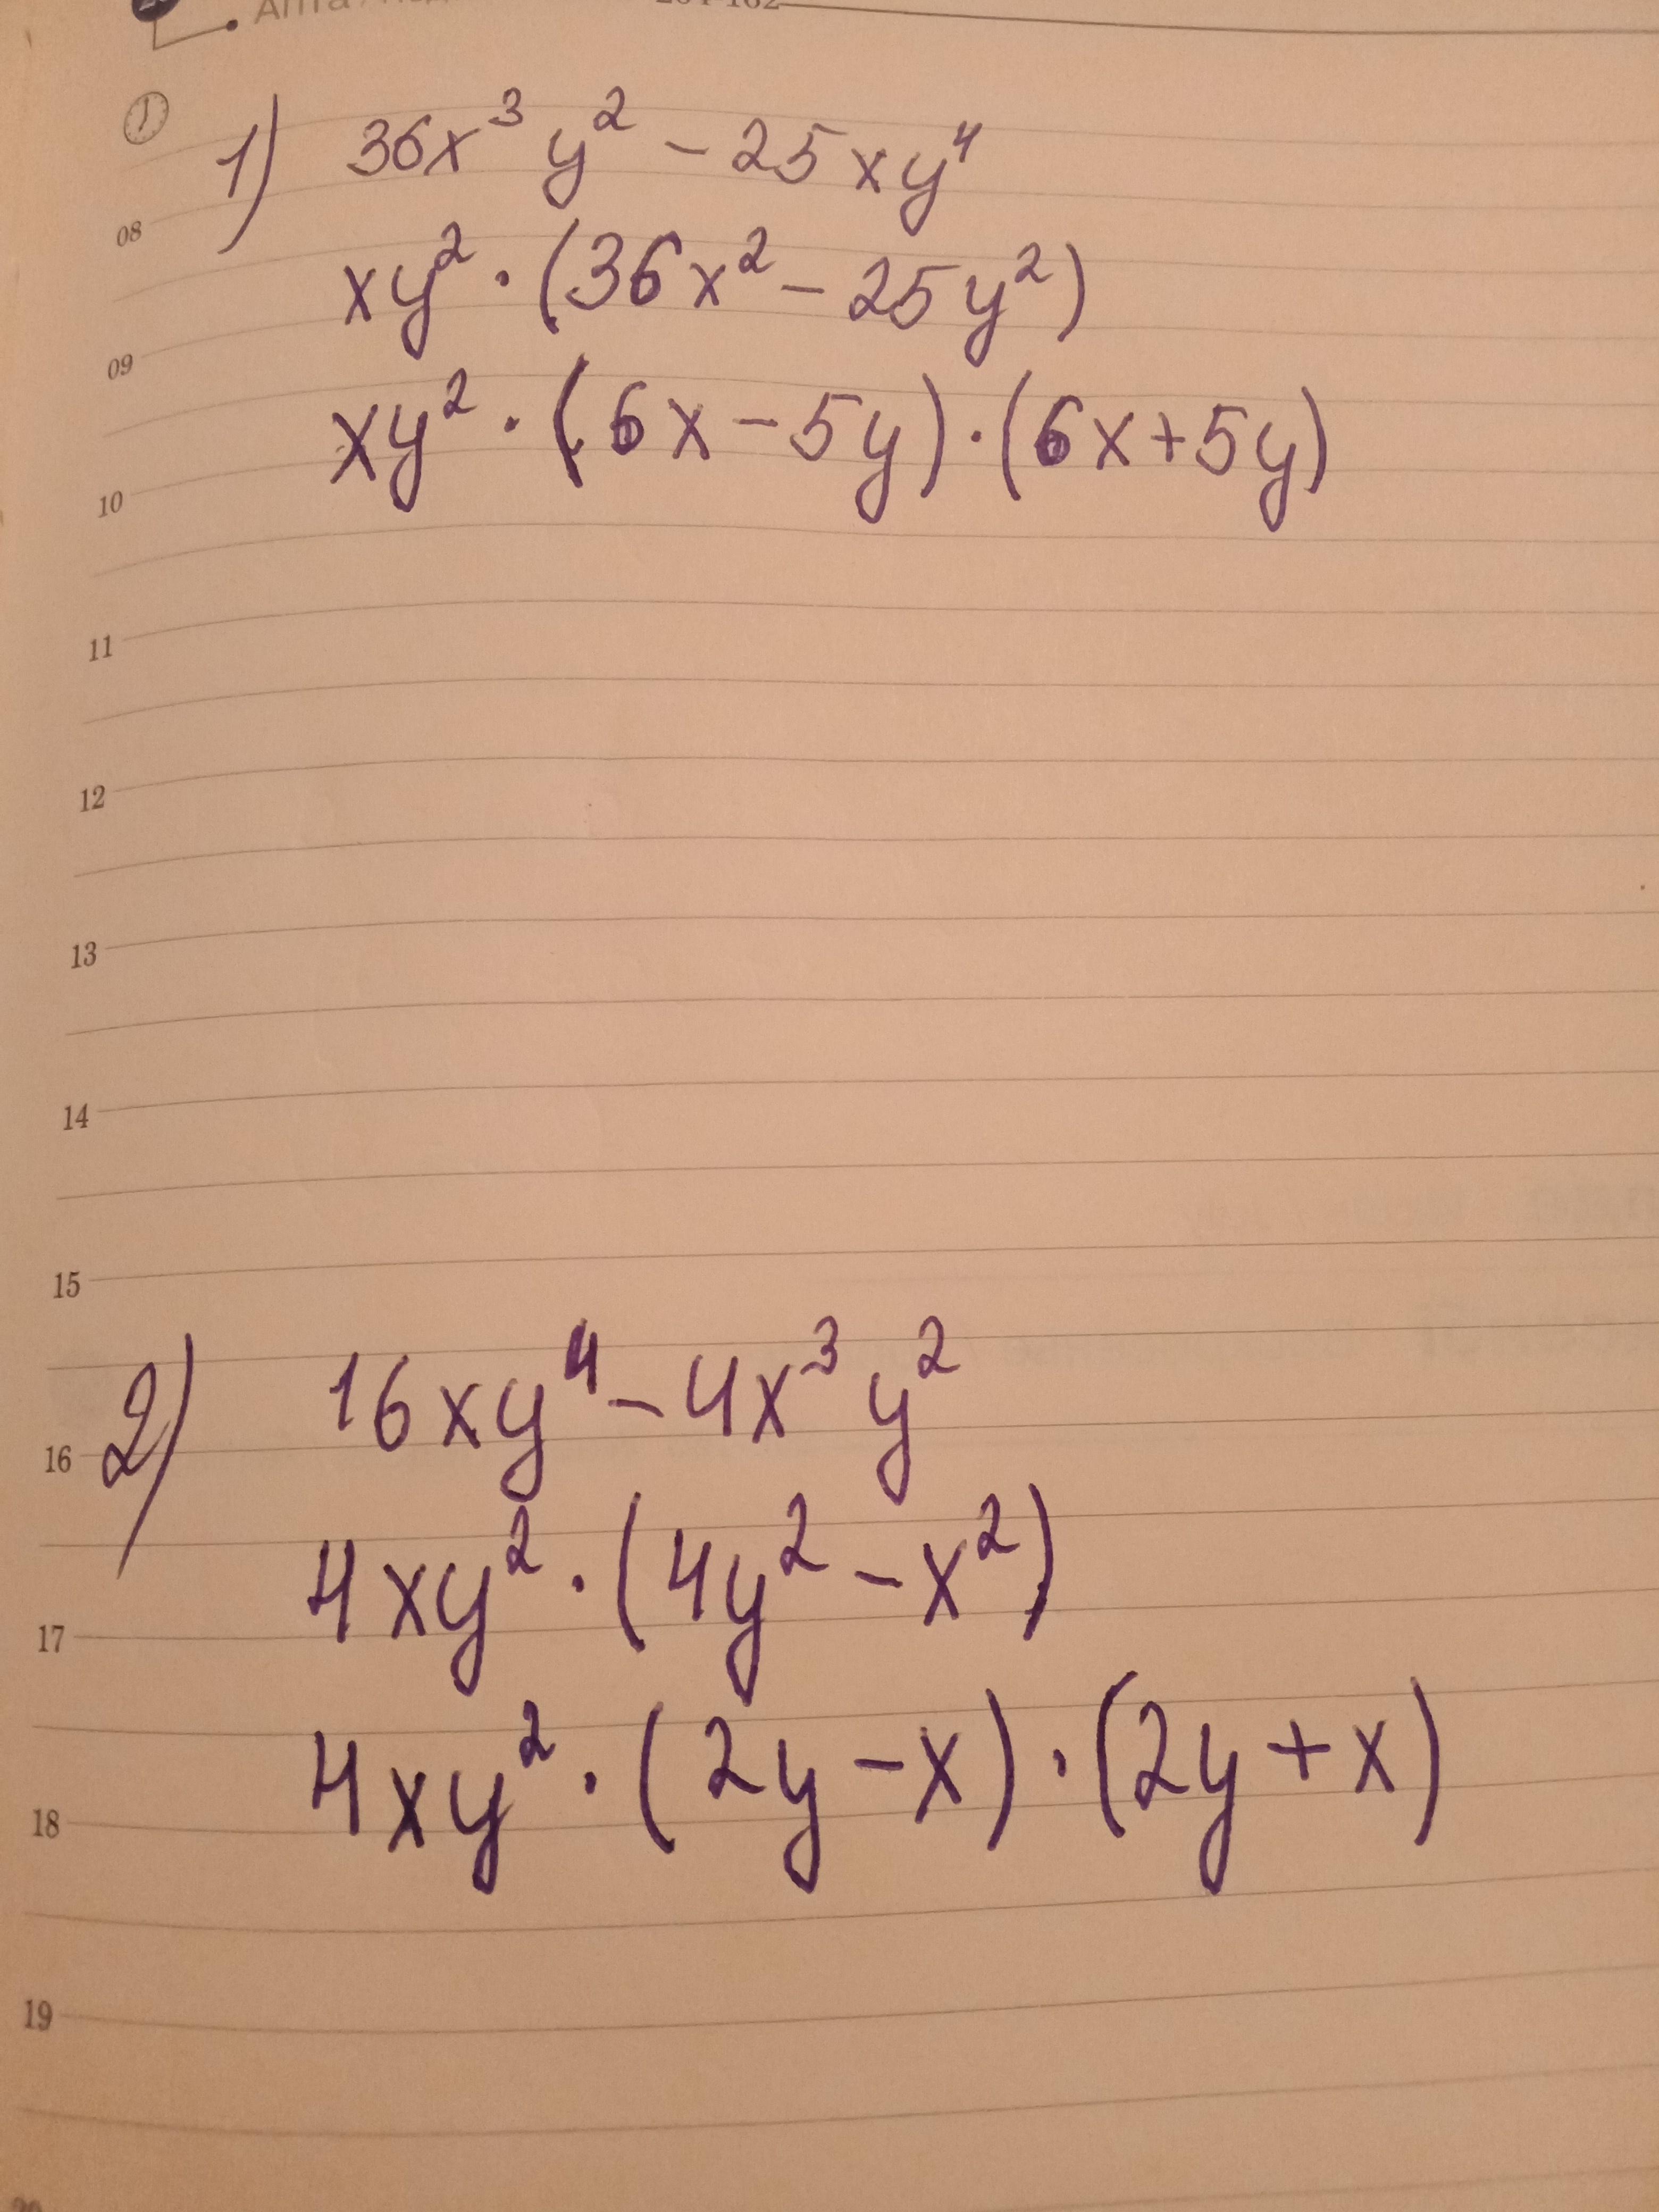 Апта
1) 36x³y² - 25xy⁴
08
xy² · (36x² - 25y²)
09
xy² · (6x - 5y) · (6x + 5y)
10
11
12
13
14
15
2) 16xy⁴ - 4x³y²
16
4xy² · (4y² - x²)
17
4xy² · (2y - x) · (2y + x)
18
19